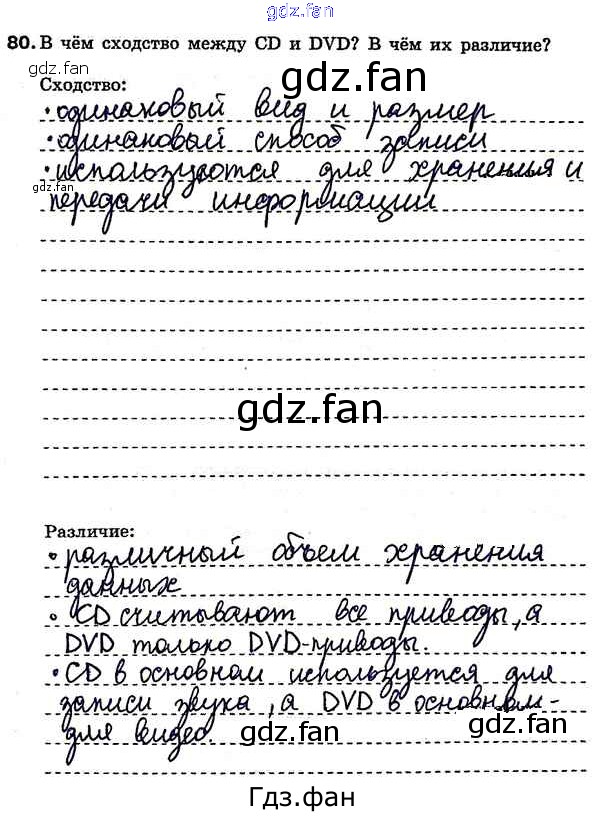 gdz.fan
80. В чём сходство между CD и DVD? В чём их различие?
gdz.fan
gdz.fan
Сходство:
• одинаковый вид и размер
• одинаковый способ записи
• используются для хранения и
gdz.fan
передачи информации
gdz.fan
Различие:
• различный объем хранения
данных
• CD считывают все приводы, а
DVD только DVD-приводы.
• CD в основном используется для
записи звука, а DVD в основном-
для видео.
gdz.fan
gdz.fan
Гдз.фан